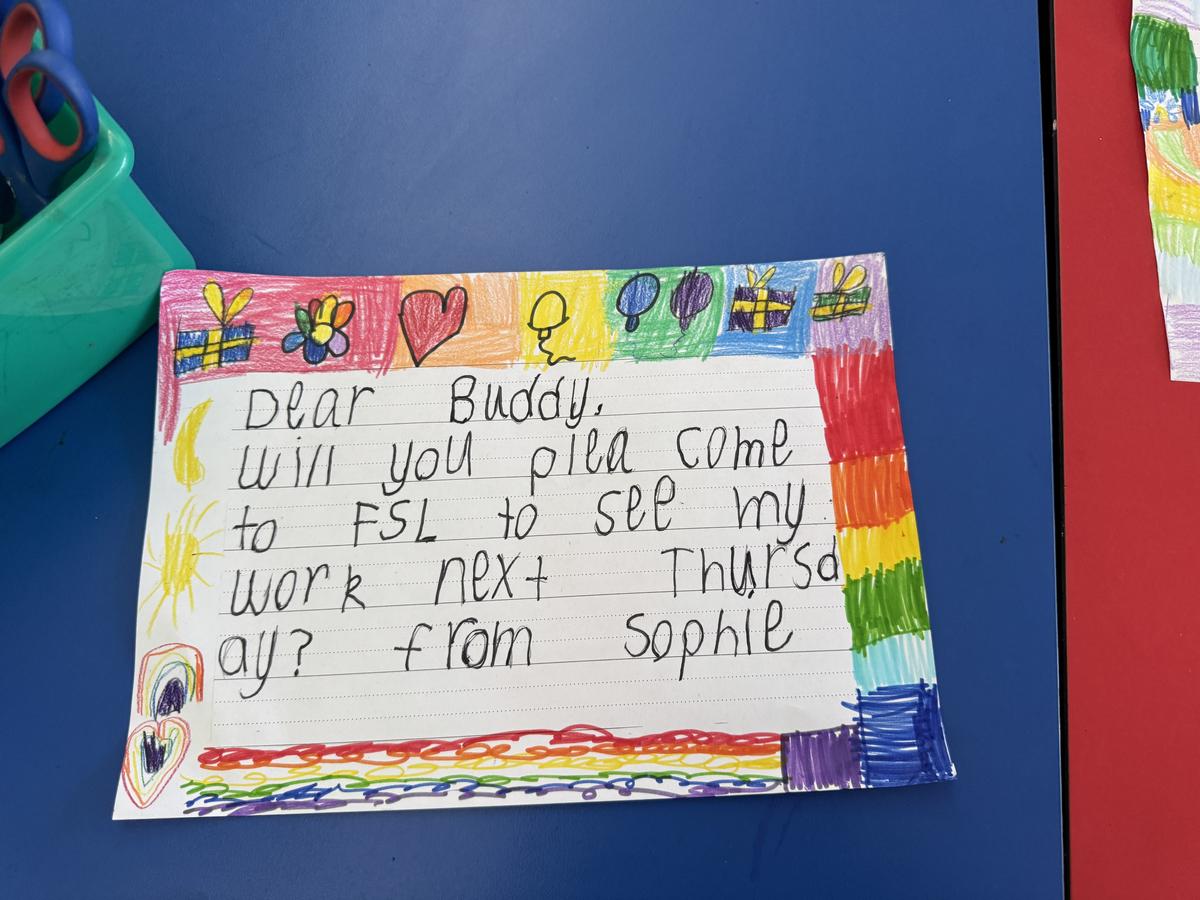 Dear Buddy.
will you plea come
to FSL to see my
work next Thursd
ay? from Sophie